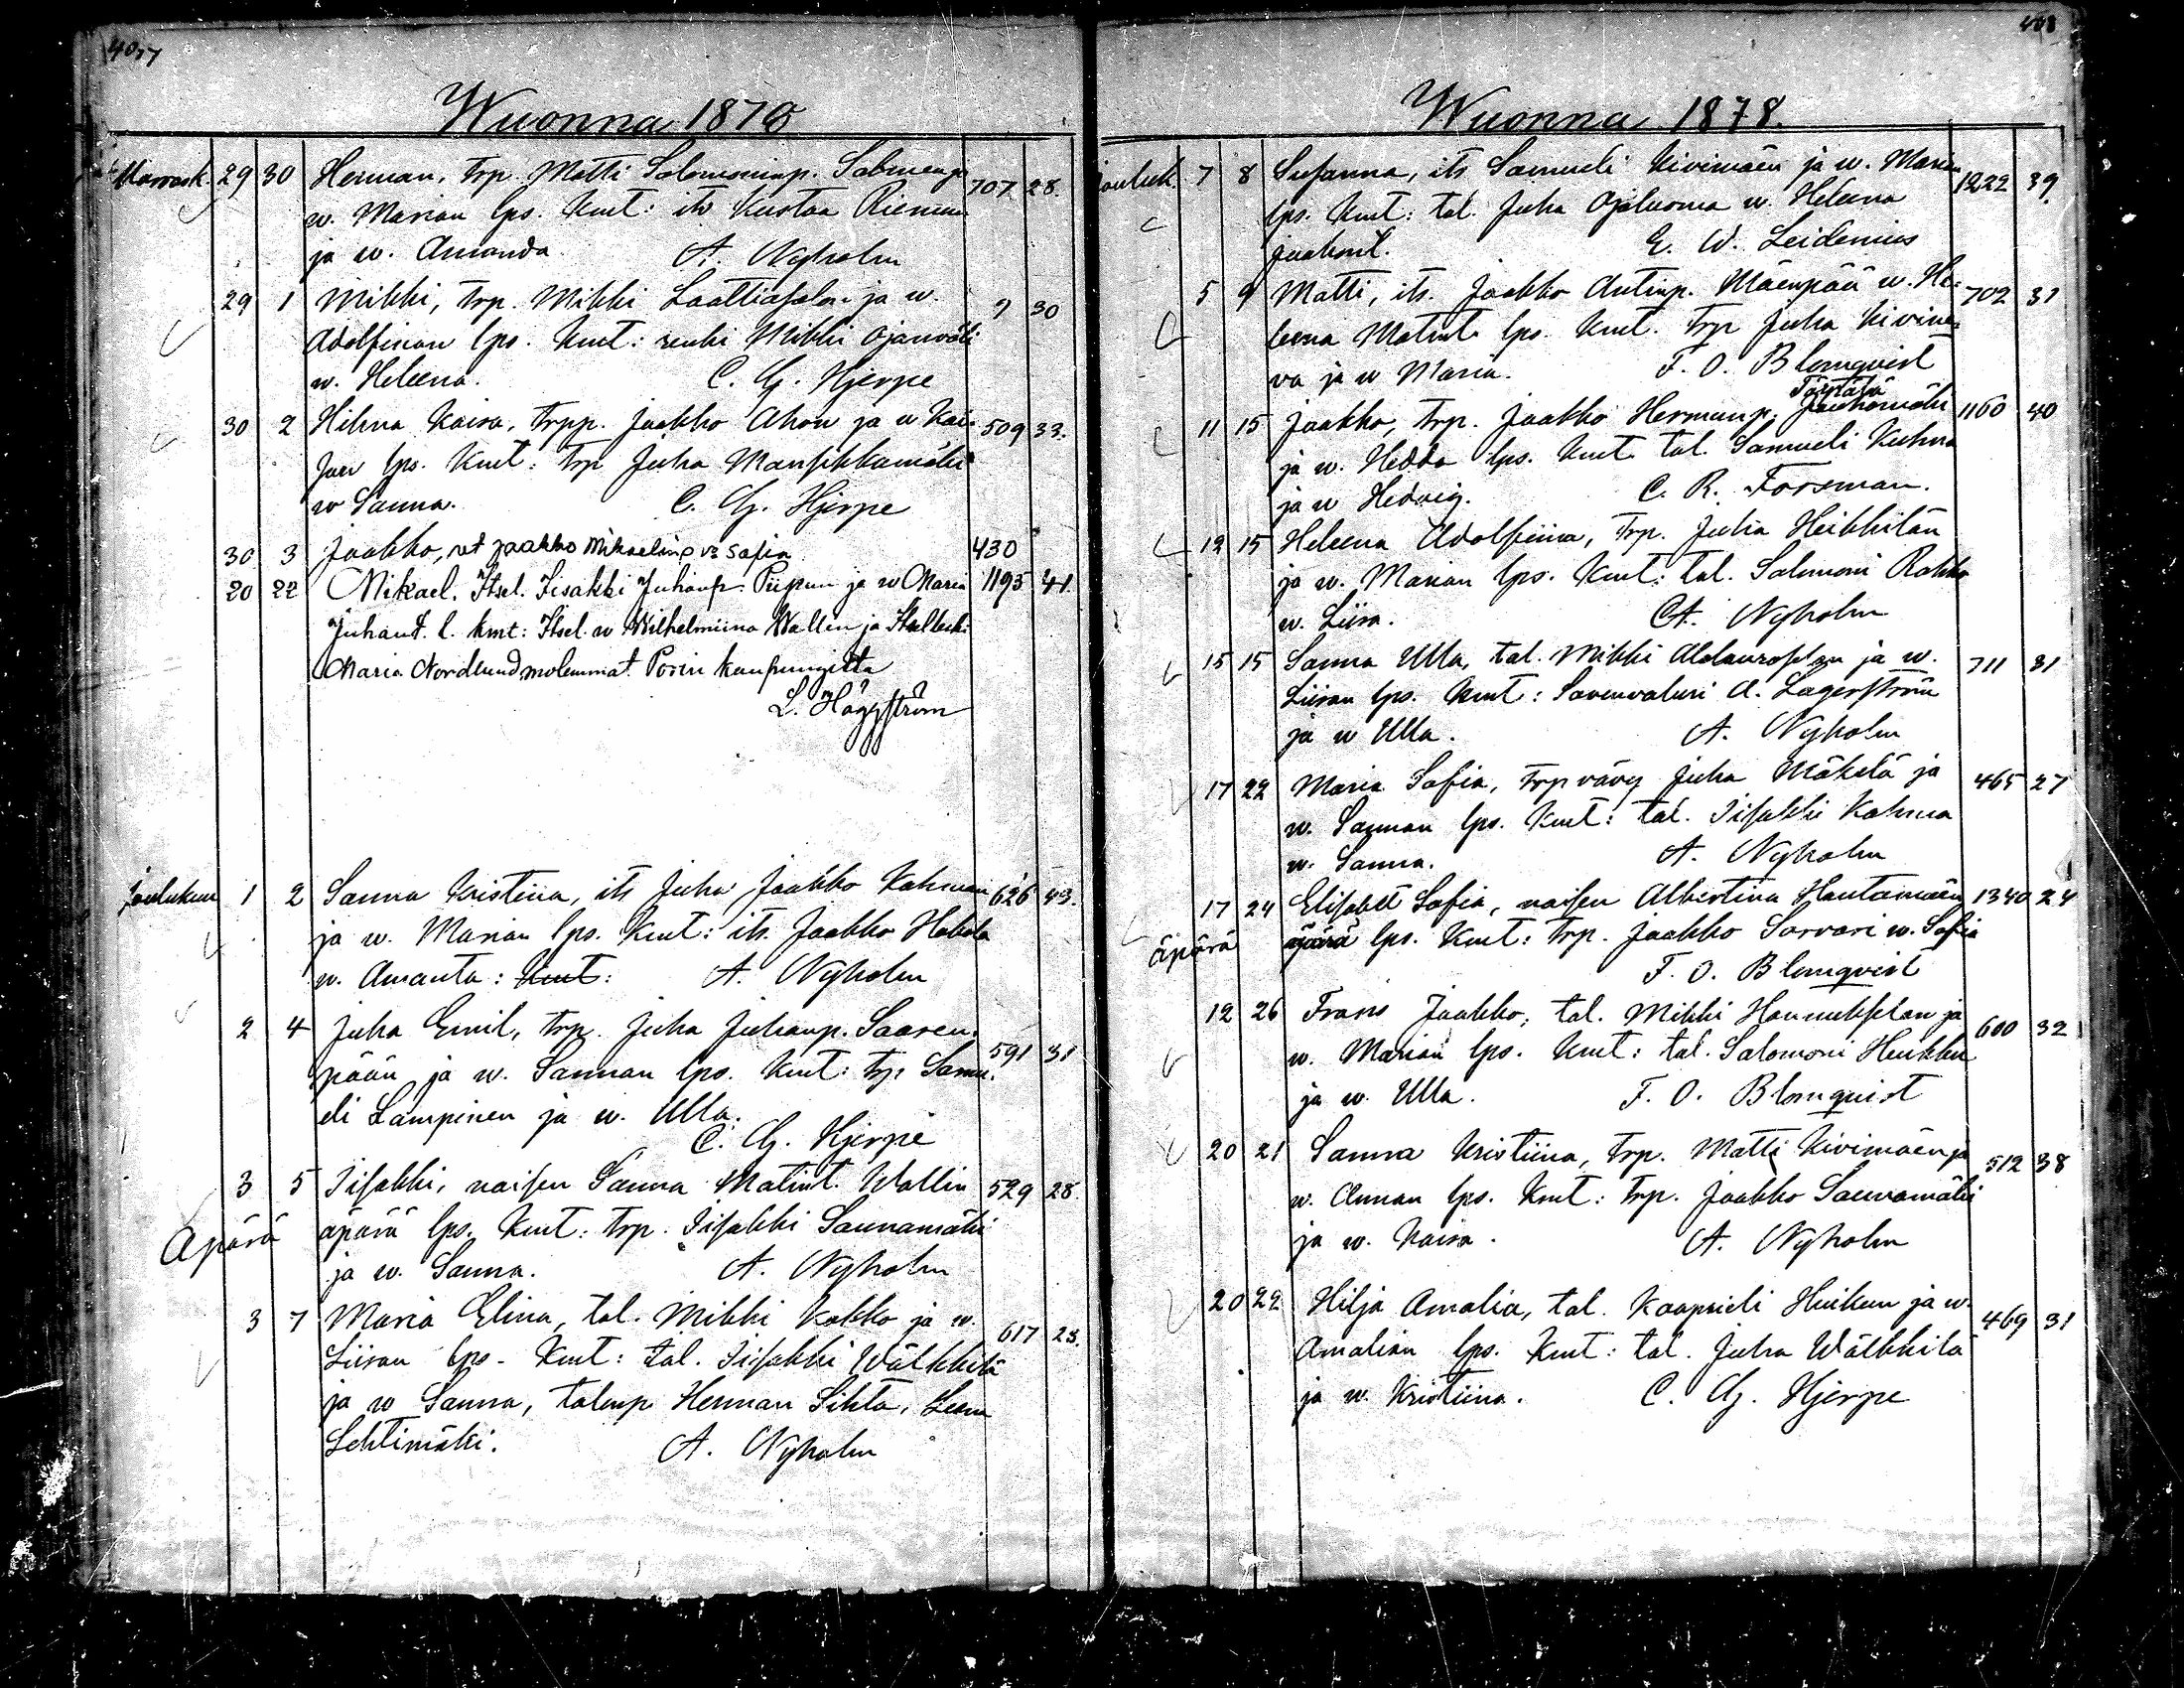 4077
Wuonna 1878
Marrask. 29 30 Herman, trp. Matti Salomoninp. Salmen ja 707 28.
w. Marian lps. Kmt: its Kustaa Rieneen
ja w. Amanda. A. Nyholm
29 1 Mikki, trp. Mikki Laattiaselan ja w. 9 30
Adolfiinan lps. Kmt: renki Mikki Ojanwäli
w. Heleena. C. G. Hjerpe
30 2 Hilma Kaisa, trpp. Jaakko Ahon ja w Kai- 509 33.
san lps. Kmt: trp Juha Mansikkamäki
w Sanna. C. G. Hjerpe
30 3 Jaakko, ret Jaakko Mikaelinp vs Sofia 430
20 22 Mikael. Itsel. Iisakki Juhanp. Piipun ja w Maria 1195 41.
Juhant. l. kmt: Itsel. w Wilhelmiina Wallen ja
Maria Nordlund molemmat Porin kaupungista
L. Häggström
Joulukuu 1 2 Sanna Kristiina, its Juha Jaakko Kahman 626 43.
ja w. Marian lps. Kmt: its. Jaakko Hakola
w. Amanta: Kmt: A. Nyholm
2 4 Juha Emil, trp. Juha Juhanp. Saaren-
pään ja w. Sannan lps. Kmt: trp Samu- 591 31
eli Lampinen ja w. Ulla.
C. G. Hjerpe
3 5 Iisakki, naisen Sanna Matint. Wallin 529 28
Äpärä äpärä lps. Kmt: trp. Iisakki Saunamäki
ja w. Sanna. A. Nyholm
3 7 Maria Elina, tal. Mikki Kakko ja w. 617 23.
Liisan lps. Kmt: tal. Iisakki Wälkkilä
ja w Sanna, talonp Herman Sihto, Leena
Lehtimäki. A. Nyholm
408
Wuonna 1878.
Jouluk. 7 8 Susanna, its Samueli Kivimäen ja w. Marian 1222 39.
lps. Kmt: tal. Juha Ojaluoma w. Heleena
Jaakont. E. W. Leidenius
5 9 Matti, its. Jaakko Antinp. Mäenpää w. He- 702 31
leena Matint. lps. Kmt. trp Juha Kivine-
va ja w Maria. F. O. Blomqvist
11 15 Jaakko, trp. Jaakko Hermanp. Jauhomäki 1160 40
ja w. Hedda lps. Kmt. tal. Samueli Kuhna
ja w Hedvig. C. R. Forsman.
12 15 Heleena Adolfiina, trp. Juha Heikkilän
ja w. Marian lps. Kmt: tal. Salomoni Rakko
w. Liisa. A. Nyholm
15 15 Sanna Ulla, tal. Mikki Alalauroselan ja w. 711 31
Liisan lps. Kmt: Savenvaluri A. Lagerström
ja w Ulla. A. Nyholm
17 22 Maria Sofia, trp vävy Juha Mäkelä ja 465 27
w. Sannan lps. Kmt: tal. Iisakki Kahma
w. Sanna. A. Nyholm
17 24 Elisabet Sofia, naisen Albertina Hautamäen 1340 24
Äpärä äpärä lps. Kmt: trp. Jaakko Sarvari w. Sofia
F. O. Blomqvist
12 26 Frans Jaakko, tal. Mikki Hannukselan ja 600 32
w. Marian lps. Kmt: tal. Salomoni Heikku
ja w. Ulla. F. O. Blomquist
20 21 Sanna Kristiina, trp. Matti Kivimäen ja 512 38
w. Annan lps. Kmt: trp. Jaakko Saunamäki
ja w. Kaisa. A. Nyholm
20 22 Hilja Amalia, tal. Kaaprieli Huikun ja w. 469 31
Amalian lps. Kmt: tal. Juha Wälkkilä
ja w. Kristiina. C. G. Hjerpe